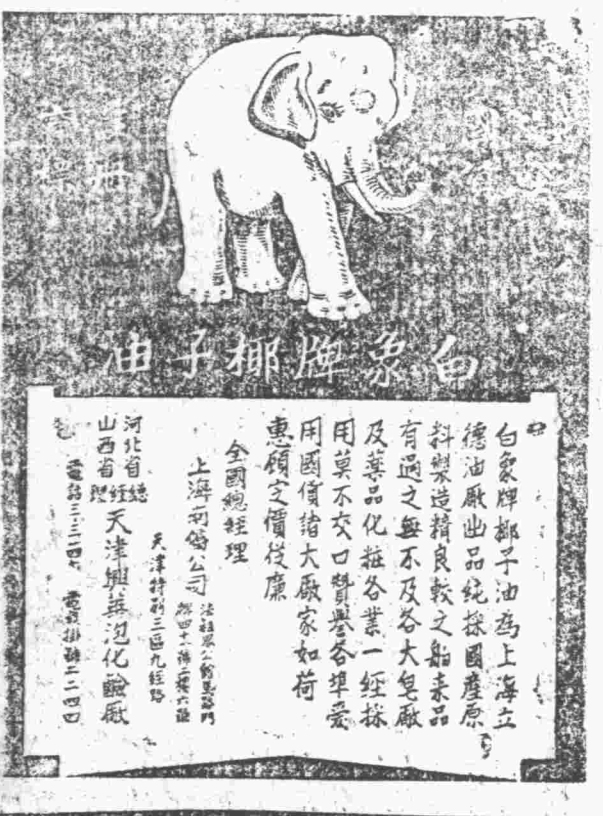 白象牌椰子油
白象牌椰子油為上海立
德油廠出品純採國產原
料製造精良較之舶來品
有過之無不及各大皂廠
及藥品化粧各業一經採
用莫不交口贊譽各埠愛
用國貨諸大廠家如荷
惠顧定價從廉
全國總經理
上海 公司
法租界
四十一號二樓六號
天津特別三區九經路
河北省
山西省
總經理
天津興華泡化鹼廠
電話三三二四七 電報掛號二二四四